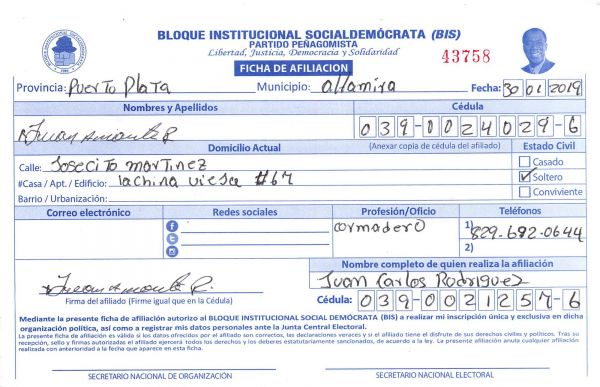 BLOQUE INSTITUCIONAL SOCIALDEMÓCRATA (BIS)
PARTIDO PEÑAGOMISTA
Libertad, Justicia, Democracia y Solidaridad
43758
FICHA DE AFILIACION
Provincia: Puerto Plata Municipio: altamira Fecha: 30 01 2019
Nombres y Apellidos Cédula
Juan R 039-0024029-6
Domicilio Actual (Anexar copia de cédula del afiliado) Estado Civil
Calle: Josecito martinez Casado
#Casa / Apt. / Edificio: la china vieja #67 Soltero
Barrio / Urbanización: Conviviente
Correo electrónico Redes sociales Profesión/Oficio Teléfonos
cormadero 1) 829-692-0644
2)
Nombre completo de quien realiza la afiliación
Juan R. Juan Carlos Rodriguez
Firma del afiliado (Firme igual que en la Cédula) Cédula: 039-0021257-6
Mediante la presente ficha de afiliación autorizo al BLOQUE INSTITUCIONAL SOCIAL DEMÓCRATA (BIS) a realizar mi inscripción única y exclusiva en dicha
organización política, así como a registrar mis datos personales ante la Junta Central Electoral.
La presente ficha de afiliación es válida si los datos ofrecidos por el afiliado son correctos, las declaraciones veraces y si el afiliado tiene el disfrute de sus derechos civiles y políticos. Tras su
recepción, sello y firmas autorizadas el afiliado ejercerá todos los derechos y los deberes estatutariamente sancionados, de acuerdo a la ley. La presente afiliación anula cualquier afiliación
realizada con anterioridad a la fecha que aparece en esta ficha.
SECRETARIO NACIONAL DE ORGANIZACIÓN SECRETARIO NACIONAL ELECTORAL